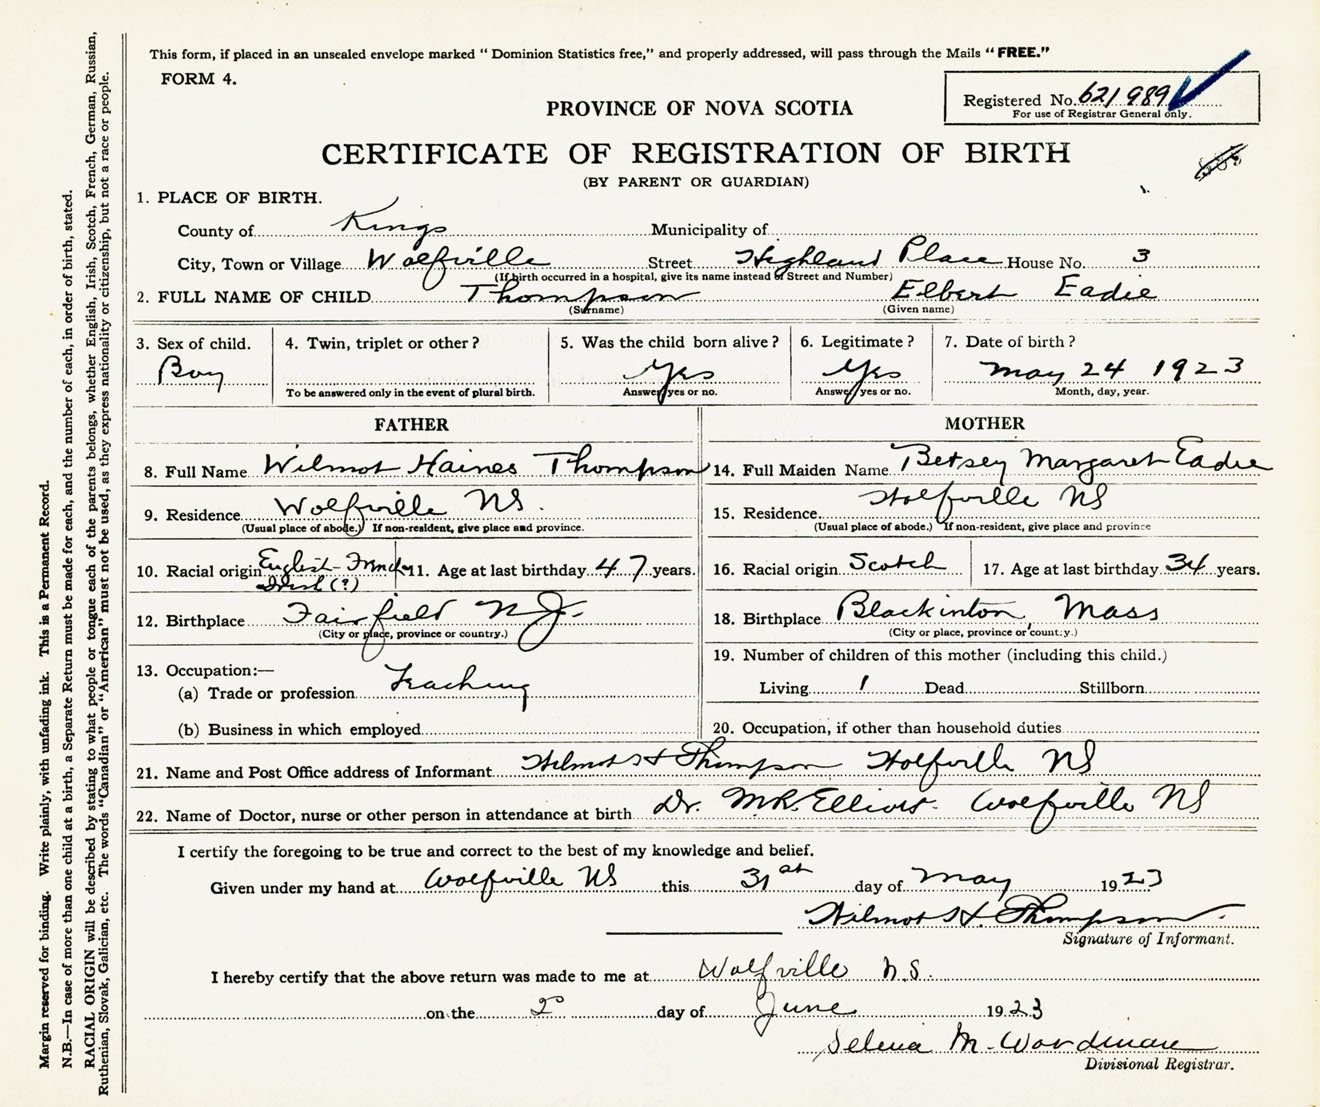 This form, if placed in an unsealed envelope marked " Dominion Statistics free," and properly addressed, will pass through the Mails "FREE."
FORM 4.
Registered No. 621989
For use of Registrar General only.
PROVINCE OF NOVA SCOTIA
CERTIFICATE OF REGISTRATION OF BIRTH
(BY PARENT OR GUARDIAN)
1. PLACE OF BIRTH.
County of Kings Municipality of
City, Town or Village Wolfville Street Highland Place House No. 3
(If birth occurred in a hospital, give its name instead of Street and Number)
2. FULL NAME OF CHILD Thompson Elbert Eadie
(Surname) (Given name)
3. Sex of child. 4. Twin, triplet or other? 5. Was the child born alive? 6. Legitimate? 7. Date of birth?
Boy Yes Yes May 24 1923
To be answered only in the event of plural birth. Answer yes or no. Answer yes or no. Month, day, year.
FATHER MOTHER
8. Full Name Wilmot Haines Thompson 14. Full Maiden Name Betsey Margaret Eadie
9. Residence Wolfville NS. 15. Residence Wolfville NS
(Usual place of abode.) If non-resident, give place and province. (Usual place of abode.) If non-resident, give place and province
10. Racial origin English-French 11. Age at last birthday 47 years. 16. Racial origin Scotch 17. Age at last birthday 34 years.
Irish (?)
12. Birthplace Fairfield N.J. 18. Birthplace Blackinton, Mass
(City or place, province or country.) (City or place, province or country.)
13. Occupation:— 19. Number of children of this mother (including this child.)
(a) Trade or profession Teaching Living 1 Dead Stillborn
(b) Business in which employed 20. Occupation, if other than household duties
21. Name and Post Office address of Informant Wilmot H Thompson Wolfville NS
22. Name of Doctor, nurse or other person in attendance at birth Dr. M.R. Elliott. Wolfville NS
I certify the foregoing to be true and correct to the best of my knowledge and belief.
Given under my hand at Wolfville NS this 31st day of May 1923
Wilmot H. Thompson.
Signature of Informant.
I hereby certify that the above return was made to me at Wolfville N.S.
on the 2 day of June 1923
Selena M. Woodman
Divisional Registrar.
Margin reserved for binding. Write plainly, with unfading ink. This is a Permanent Record.
N.B.—In case of more than one child at a birth, a Separate Return must be made for each, and the number of each, in order of birth, stated.
RACIAL ORIGIN will be described by stating to what people or tongue each of the parents belongs, whether English, Irish, Scotch, French, German, Russian,
Ruthenian, Slovak, Galician, etc. The words "Canadian" or "American" must not be used, as they express nationality or citizenship, but not a race or people.